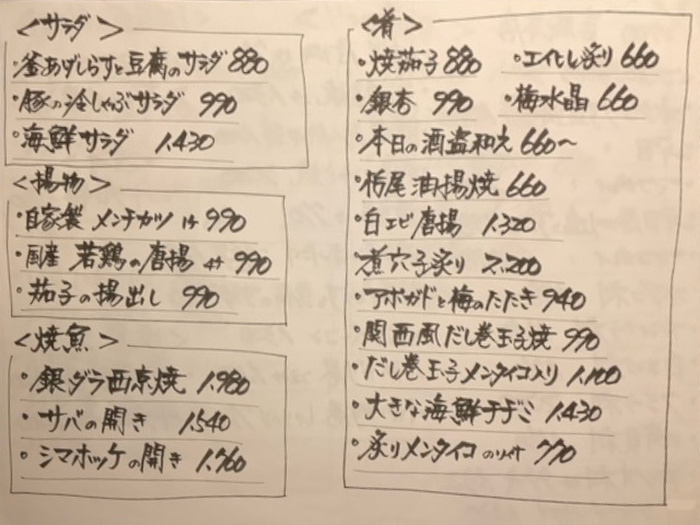 <サラダ>
・釜あげしらすと豆腐のサラダ 880
・豚の冷しゃぶサラダ 990
・海鮮サラダ 1,430
<揚物>
・自家製 メンチカツ 1ケ 990
・国産 若鶏の唐揚 4ケ 990
・茄子の揚出し 990
<焼魚>
・銀ダラ西京焼 1,980
・サバの開き 1,540
・シマホッケの開き 1,760
<肴>
・焼茄子 880 ・エイヒレ炙り 660
・銀杏 990 ・梅水晶 660
・本日の酒盗和え 660〜
・栃尾油揚焼 660
・白エビ唐揚 1,320
・煮穴子炙り 2,200
・アボガドと梅のたたき 940
・関西風だし巻玉子焼 990
・だし巻玉子メンタイコ入り 1,100
・大きな海鮮チヂミ 1,430
・炙りメンタイコ のり付 770